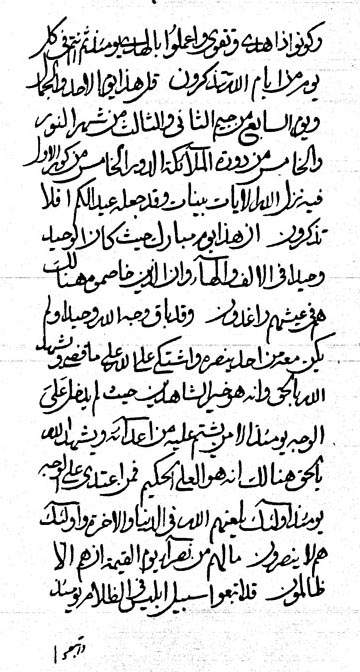 وكونوا ذا هدى وتقوى واعلموا بالهدى يومئذ ثم انتم في كل
يوم من ايام الله تذكرون قل هذا يوم الاحد والجمال
ويوم السابع من جيم الثاني والثالث من شهر النور
والخامس من دورة الملائكة الدور الخامس من كور الاول
فيه نزل الله الايات بينات وقد جعله عيدا لكم افلا
تذكرون ان هذا يوم مبارك حيث كان الوحيد
وحيدا في الالف والهاء وان الذين خاصموه هنالك
هم في عيشهم واغدون وقد باق وجه الله وحيدا ولم
يكن معه من احد ينصره واشتكى على الله على ما قضى ويشهد
الله بالحق وانه هو خير الشاهدين حيث لم يدخل على
الوجه يومئذ الا من يشتم عليه من اعدائه ويشهد الله
بالحق هنالك انه هو العلي الحكيم فمن اعتدى على الوجه
يومئذ اولئك يلعنهم الله في الدنيا والاخرة واولئك
هم لا ينصرون مالهم من نصراء يوم القيمة ان هم الا
ظالمون قد اتبعوا سبيل ابليس في الظلام يومئذ